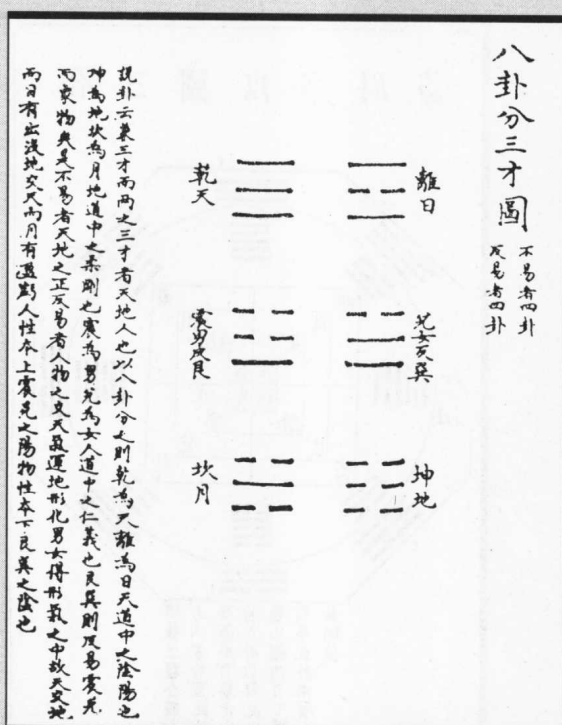 八卦分三才圖
不易者四卦
反易者四卦
離日
乾天
兌女反巽
震男反艮
坤地
坎月
說卦云兼三才而兩之三才者天地人也以八卦分之則乾為天離為日天道中之陰陽也
坤為地坎為月地道中之柔剛也震為男兌為女人道中之仁義也艮巽則反易震兌
而象物矣是不易者天地之正反易者人物之交天氣運地形化男女得形氣之中故天交地
而日有出沒地交天而月有盈虧人性本上震兌之陽物性本下艮巽之陰也